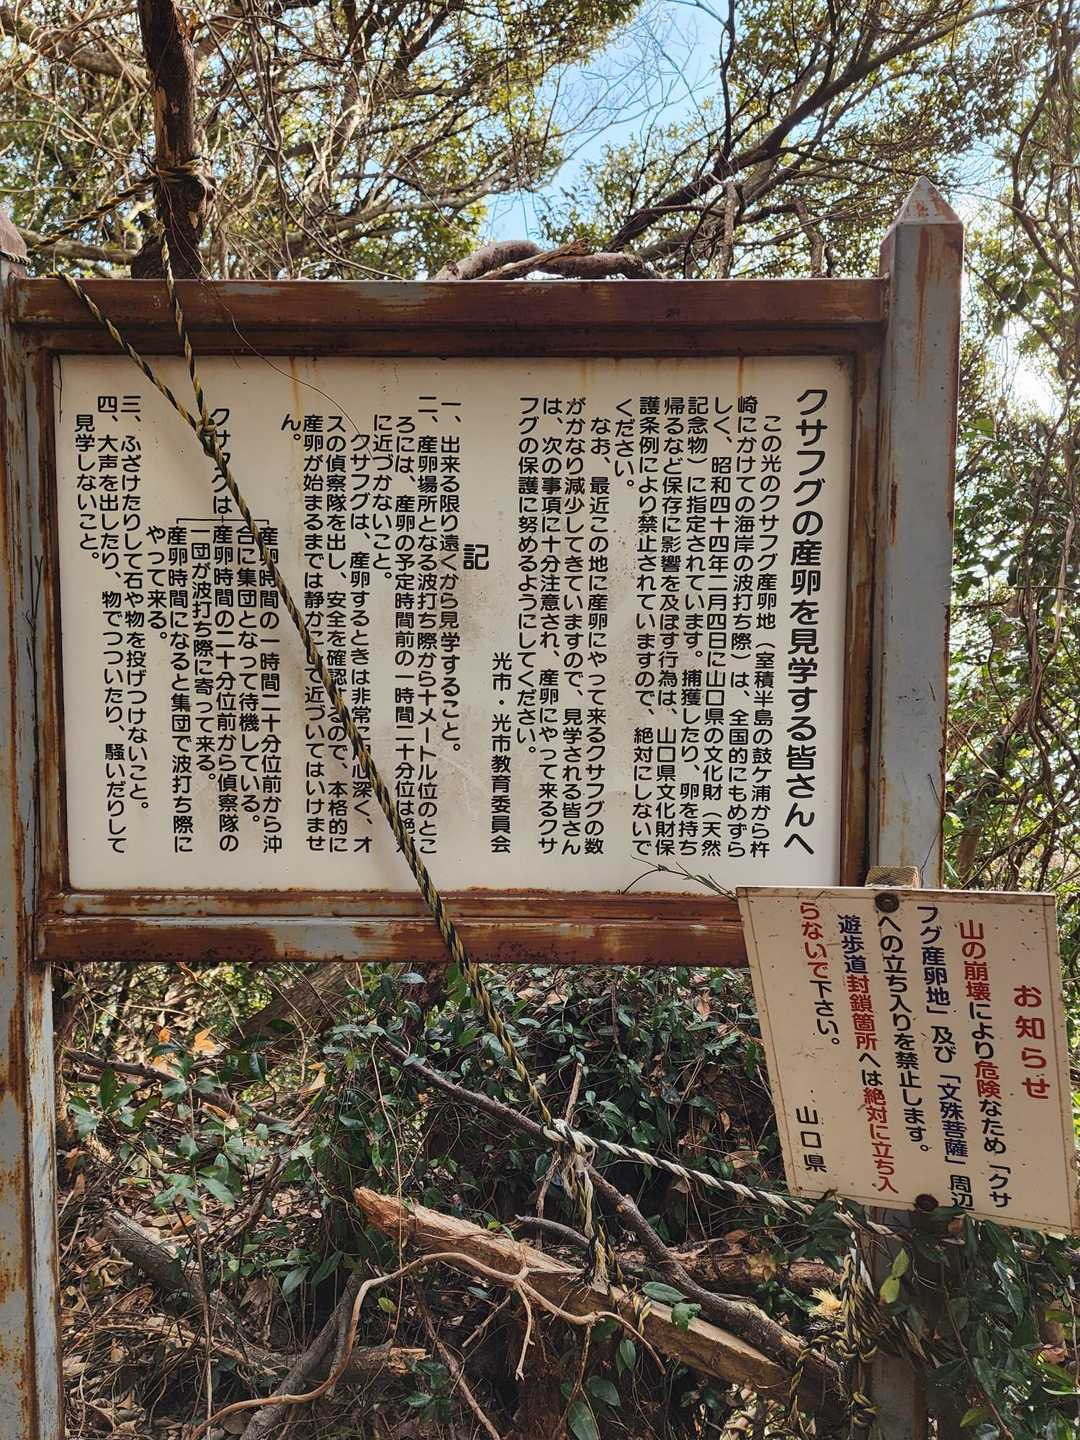 クサフグの産卵を見学する皆さんへ
この光のクサフグ産卵地（室積半島の鼓ケ浦から杵
崎にかけての海岸の波打ち際）は、全国的にもめずら
しく、昭和四十四年二月四日に山口県の文化財（天然
記念物）に指定されています。捕獲したり、卵を持ち
帰るなど保存に影響を及ぼす行為は、山口県文化財保
護条例により禁止されていますので、絶対にしないで
ください。
なお、最近この地に産卵にやって来るクサフグの数
がかなり減少してきていますので、見学される皆さん
は、次の事項に十分注意され、産卵にやって来るクサ
フグの保護に努めるようにしてください。
光市・光市教育委員会
記
一、出来る限り遠くから見学すること。
二、産卵場所となる波打ち際から十メートル位のとこ
ろには、産卵の予定時間前の一時間二十分位は絶対
に近づかないこと。
クサフグは、産卵するときは非常に用心深く、オ
スの偵察隊を出し、安全を確認するので、本格的に
産卵が始まるまでは静かにして近づいてはいけませ
ん。
クサフグは
産卵時間の一時間二十分位前から沖
合に集団となって待機している。
産卵時間の二十分位前から偵察隊の
一団が波打ち際に寄って来る。
産卵時間になると集団で波打ち際に
やって来る。
三、ふざけたりして石や物を投げつけないこと。
四、大声を出したり、物でつついたり、騒いだりして
見学しないこと。
お知らせ
山の崩壊により危険なため「クサ
フグ産卵地」及び「文殊菩薩」周辺
への立ち入りを禁止します。
遊歩道封鎖箇所へは絶対に立ち入
らないで下さい。
山口県